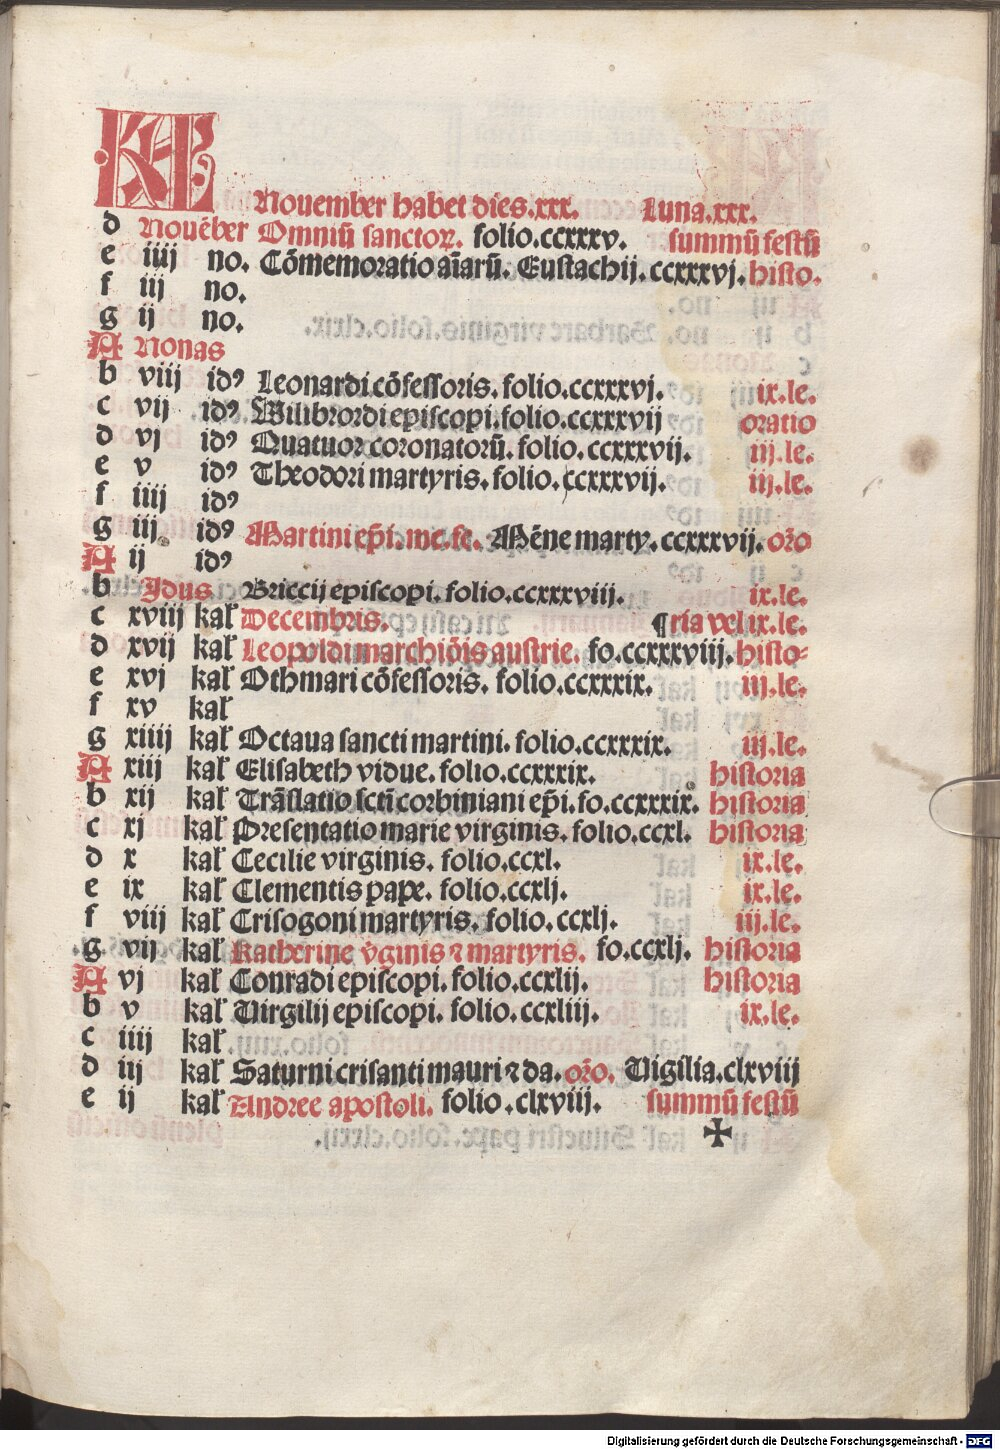 KL
Nouember habet dies.xxx. Luna.xxx.
d Nouēber Omniū sanctoꝝ. folio.ccxxxv. summū festū
e iiij no. Cōmemoratio aīarū. Eustachij. ccxxxvj. histo.
f iij no.
g ij no.
A Nonas
b viij idꝰ Leonardi cōfessoris. folio.ccxxxvj. ix.le.
c vij idꝰ Wilibrordi episcopi. folio.ccxxxvij oratio
d vj idꝰ Quatuor coronatorū. folio.ccxxxvij. iij.le.
e v idꝰ Theodori martyris. folio.ccxxxvij. iij.le.
f iiij idꝰ
g iij idꝰ Martini ep̄i. mc.fe. Mēne marty. ccxxxvij. oȓo
A ij idꝰ
b Jdus Briccij episcopi. folio.ccxxxviij. ix.le.
c xviij kał Decembris. ¶ria vel ix.le.
d xvij kał Leopoldi marchiōis austrie. fo.ccxxxviij. histo-
e xvj kał Othmari cōfessoris. folio.ccxxxix. iij.le.
f xv kał
g xiiij kał Octaua sancti martini. folio.ccxxxix. iij.le.
A xiij kał Elisabeth vidue. folio.ccxxxix. historia
b xij kał Trāslatio sctī corbiniani ep̄i. fo.ccxxxix. historia
c xj kał Presentatio marie virginis. folio.ccxl. historia
d x kał Cecilie virginis. folio.ccxl. ix.le.
e ix kał Clementis pape. folio.ccxlj. ix.le.
f viij kał Crisogoni martyris. folio.ccxlj. iij.le.
g vij kał Katherine v̓ginis ⁊ martyris. fo.ccxlj. historia
A vj kał Conradi episcopi. folio.ccxlij. historia
b v kał Virgilij episcopi. folio.ccxliij. ix.le.
c iiij kał
d iij kał Saturni crisanti mauri ⁊ da. oȓo. Vigilia.clxviij
e ij kał Andree apostoli. folio.clxviij. summū festū
✠
Digitalisierung gefördert durch die Deutsche Forschungsgemeinschaft - DFG